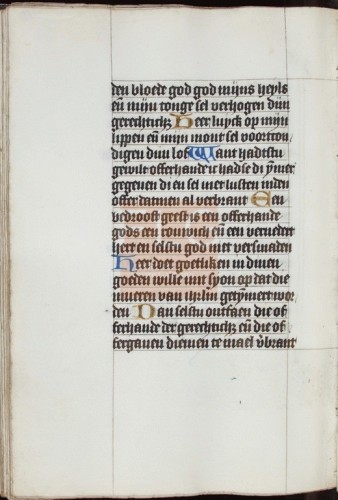 den bloede god god mijns heyls
eñ mijn tonge sel verhogen dijn
gerechtich; Heer luyck op mijn
lippen eñ mijn mont sel voortcon
digen dijn lof Want hadestu
gewilt offerhande ic hadse di ymer
gegeven di en sel niet lusten inden
offer dannen al verbrant Een
bedrooft geest is een offerhande
gods een rouwich eñ een vernedert
hert en selstu god niet versmaden
Heer doet goetliken in dinen
goeden wille mit syon op dat die
mueren van ihrlm getymert wor
den Dan selstu ontfaen die of
ferhande der gerechtich; eñ die of
fergaven diemen te mael v̄brant